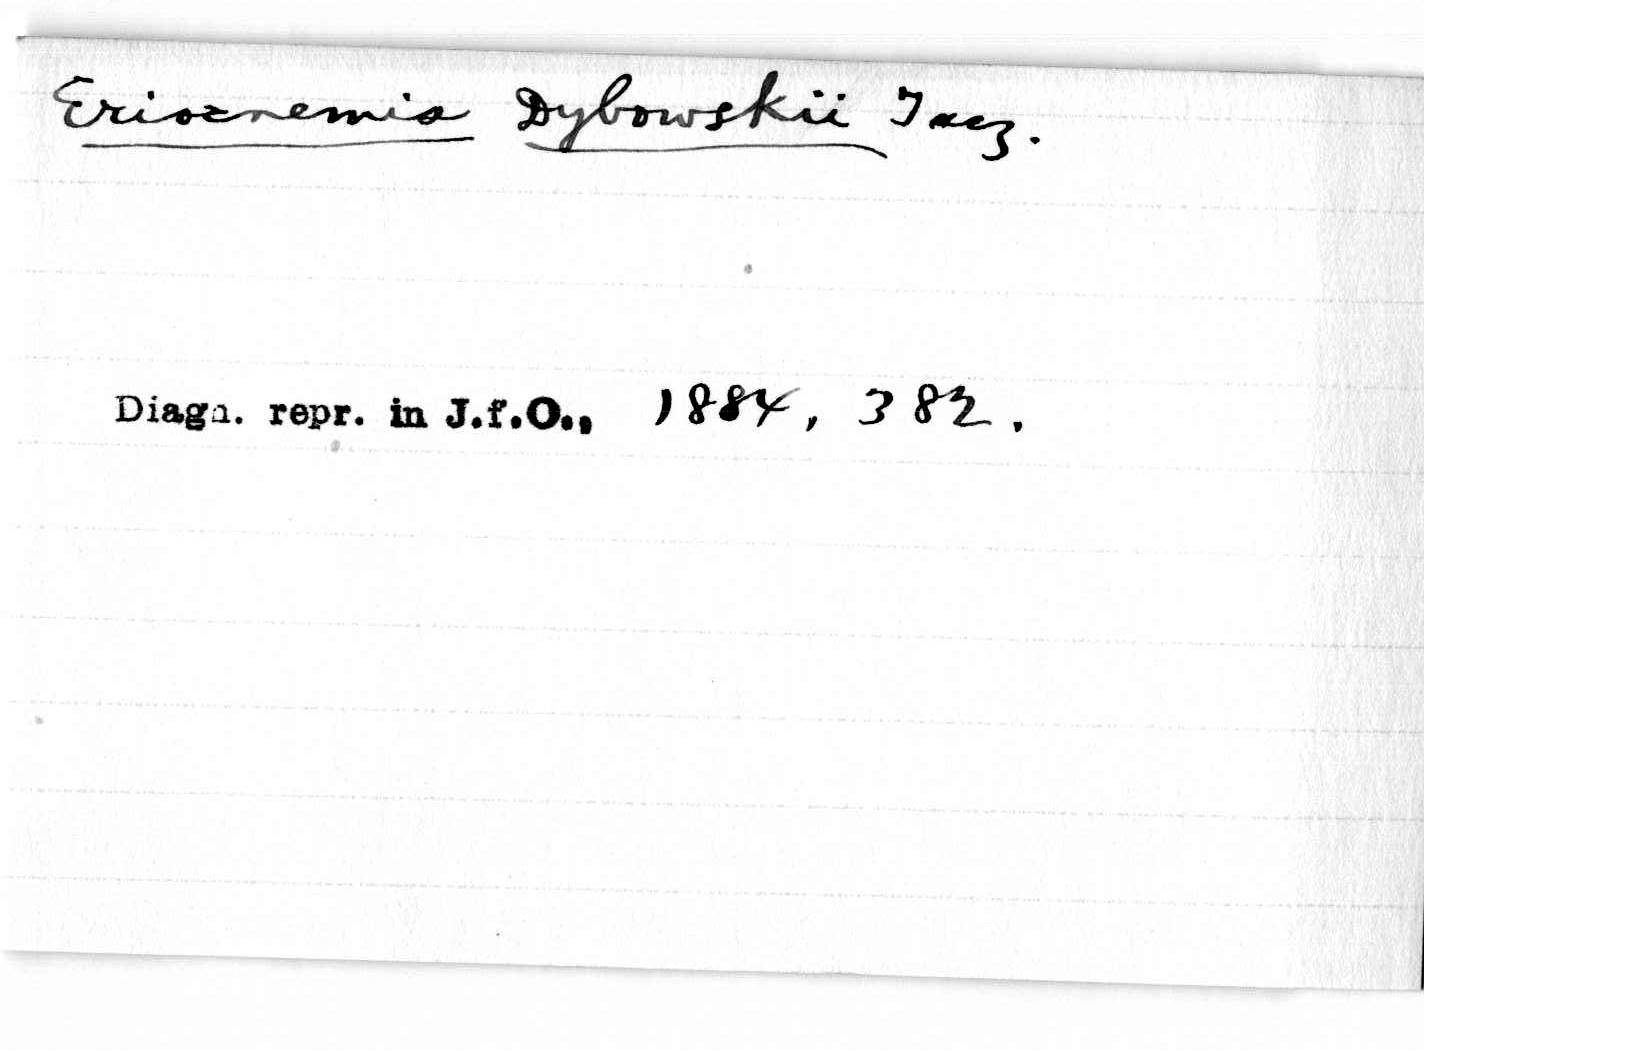 Eriocnemia Dybowskii Tacz.
Diagn. repr. in J.f.O., 1884, 382.